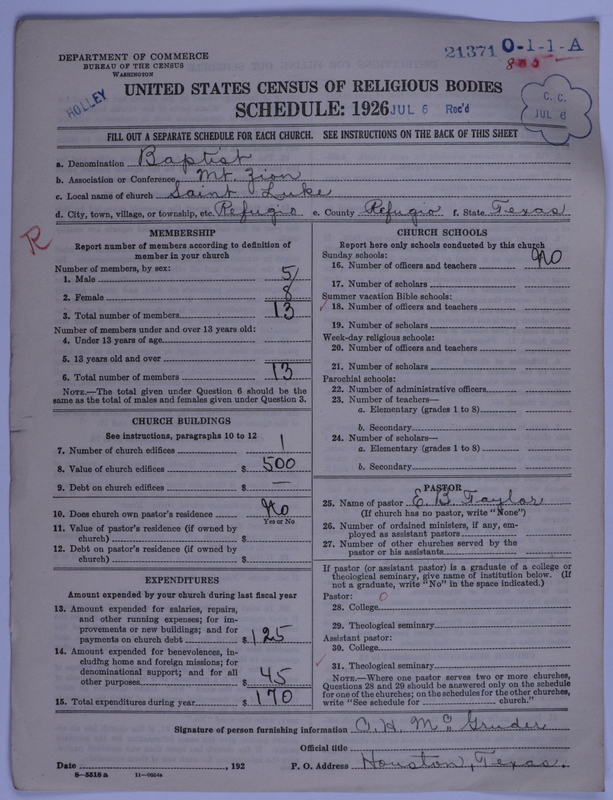 DEPARTMENT OF COMMERCE
BUREAU OF THE CENSUS
WASHINGTON
21371 0-1-1-A
HOLLEY
UNITED STATES CENSUS OF RELIGIOUS BODIES
SCHEDULE: 1926 JUL 6 Rec'd
C. C.
JUL 6
FILL OUT A SEPARATE SCHEDULE FOR EACH CHURCH. SEE INSTRUCTIONS ON THE BACK OF THIS SHEET
a. Denomination Baptist
b. Association or Conference Mt. Zion
c. Local name of church Saint Luke
d. City, town, village, or township, etc. Refugio e. County Refugio f. State Texas
R
MEMBERSHIP
Report number of members according to definition of
member in your church
Number of members, by sex:
1. Male 5
2. Female 8
3. Total number of members 13
Number of members under and over 13 years old:
4. Under 13 years of age
5. 13 years old and over
6. Total number of members 13
NOTE.—The total given under Question 6 should be
same as the total of males and females given under Question 3.
CHURCH BUILDINGS
See instructions, paragraphs 10 to 12
7. Number of church edifices 1
8. Value of church edifices $ 500
9. Debt on church edifices $ —
10. Does church own pastor's residence No
Yes or No
11. Value of pastor's residence (if owned by
church) $
12. Debt on pastor's residence (if owned by
church) $
EXPENDITURES
Amount expended by your church during last fiscal year
13. Amount expended for salaries, repairs,
and other running expenses; for im-
provements or new buildings; and for
payments on church debt $ 125
14. Amount expended for benevolences, in-
cluding home and foreign missions; for
denominational support; and for all
other purposes $ 45
15. Total expenditures during year $ 170
CHURCH SCHOOLS
Report here only schools conducted by this church
Sunday schools:
16. Number of officers and teachers No
17. Number of scholars
Summer vacation Bible schools:
18. Number of officers and teachers
19. Number of scholars
Week-day religious schools:
20. Number of officers and teachers
21. Number of scholars
Parochial schools:
22. Number of administrative officers
23. Number of teachers—
a. Elementary (grades 1 to 8)
b. Secondary
24. Number of scholars—
a. Elementary (grades 1 to 8)
b. Secondary
PASTOR
25. Name of pastor E. B. Taylor
(If church has no pastor, write "None")
26. Number of ordained ministers, if any, em-
ployed as assistant pastors
27. Number of other churches served by the
pastor or his assistants
If pastor (or assistant pastor) is a graduate of a college or
theological seminary, give name of institution below. (If
not a graduate, write "No" in the space indicated.)
Pastor: 0
28. College
29. Theological seminary
Assistant pastor:
30. College
31. Theological seminary
NOTE.—Where one pastor serves two or more churches,
Questions 28 and 29 should be answered only on the schedule
for one of the churches; on the schedules for the other churches,
write "See schedule for church."
Signature of person furnishing information C. H. McGruder
Official title
Date , 192 P. O. Address Houston, Texas.
8—5518a 11—9054a